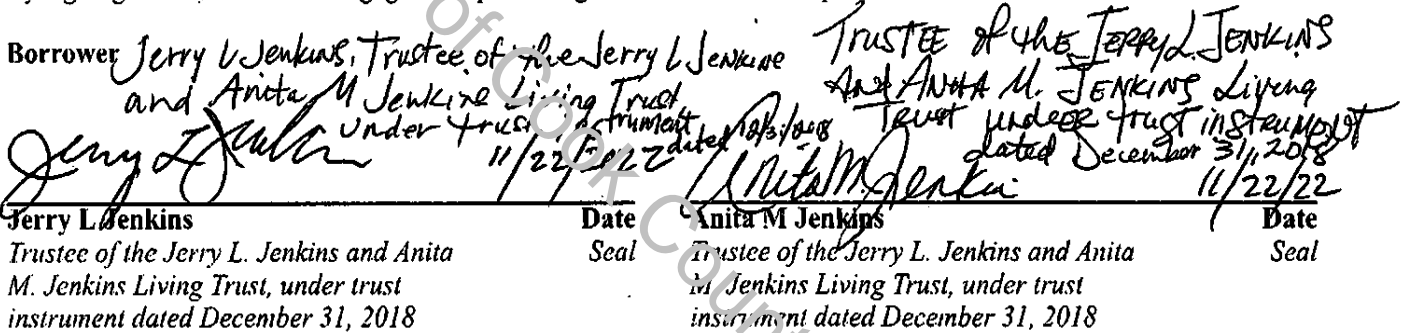 Borrower Jerry L Jenkins, Trustee of the Jerry L Jenkins
and Anita M Jenkins Living Trust
under trust instrument dated 12/31/2018
Jerry L Jenkins 11/22/2022
Jerry L Jenkins Date
Trustee of the Jerry L. Jenkins and Anita Seal
M. Jenkins Living Trust, under trust
instrument dated December 31, 2018
TRUSTEE of the JERRY L. JENKINS
And ANITA M. JENKINS Living
Trust under trust instrument
dated December 31, 2018
Anita M. Jenkins 11/22/22
Anita M Jenkins Date
Trustee of the Jerry L. Jenkins and Anita Seal
M Jenkins Living Trust, under trust
instrument dated December 31, 2018
of Cook Coun